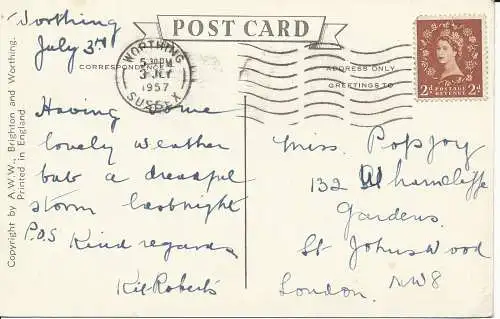 POST CARD
Worthing
July 3rd
CORRESPONDENCE
WORTHING
5 30 PM
3 JLY
1957
SUSSEX
ADDRESS ONLY
GREETINGS TO
POSTAGE
REVENUE
2d 2d
Having some
lovely weather
but a dreadful
storm last night
P.O.S Kind regards
Kit Roberts
Miss. Popjoy
132 Wharncliffe
Gardens.
St Johns Wood
London. NW8
Copyright by A.W.W., Brighton and Worthing.
Printed in England